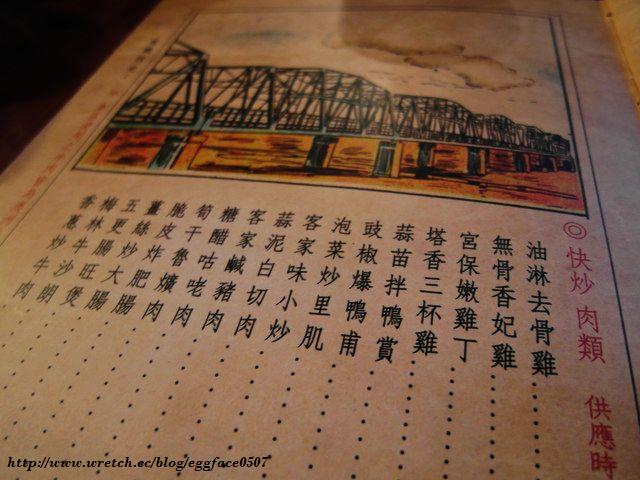 ◎快炒肉類 供應時
油淋去骨雞
無骨香妃雞
宮保嫩雞丁
塔香三杯雞
蒜苗拌鴨賞
豉椒爆鴨甫
泡菜炒里肌
客家味小炒
蒜泥白切肉
客家鹹豬肉
糖醋咕咾肉
筍干魯爌肉
脆皮炸肥腸
薑絲炒大腸
五更腸旺煲
梅林牛沙朗
香蔥炒牛肉
http://www.wretch.cc/blog/eggface0507